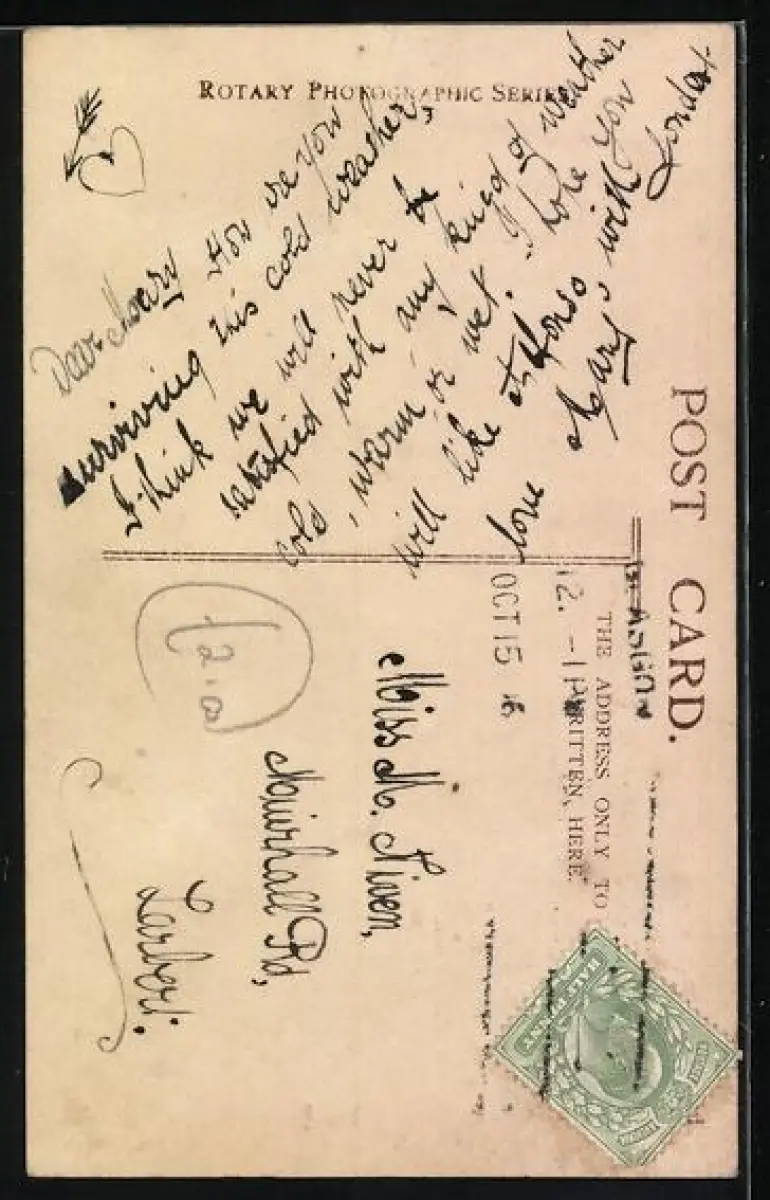 ROTARY PHOTOGRAPHIC SERIES
POST CARD.
THE ADDRESS ONLY TO
WRITTEN, HERE.
Dear Mary How are you
surviving this cold weather,
I think we will never be
satisfied with any kind of weather
cold, warm or wet. I hope you
will like
love Mary
12. - 1 PM
OCT 15
Miss M. Niven,
Muirhall Rd,
Larbert.
2.0
HALFPENNY